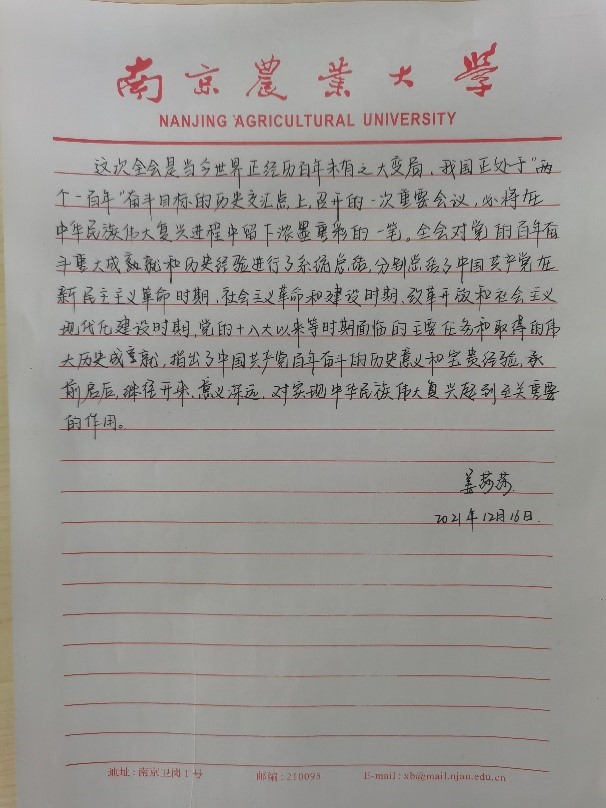 南京農業大學
NANJING AGRICULTURAL UNIVERSITY
这次全会是当今世界正经历百年未有之大变局、我国正处于“两
个一百年”奋斗目标的历史交汇点上召开的一次重要会议，必将在
中华民族伟大复兴进程中留下浓墨重彩的一笔。全会对党的百年奋
斗重大成就和历史经验进行了系统总结，分别总结了中国共产党在
新民主主义革命时期、社会主义革命和建设时期、改革开放和社会主义
现代化建设时期、党的十八大以来等时期面临的主要任务和取得的伟
大历史成就，指出了中国共产党百年奋斗的历史意义和宝贵经验，承
前启后、继往开来、意义深远，对实现中华民族伟大复兴起到至关重要
的作用。
姜莎莎
2021年12月16日.
地址:南京卫岗1号 邮编:210095 E-mail:xb@mail.njau.edu.cn